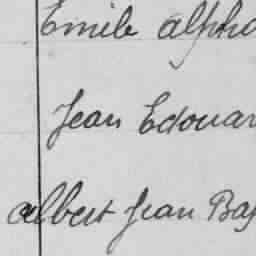 Emile alpho
Jean Edouar
albert Jean Bap